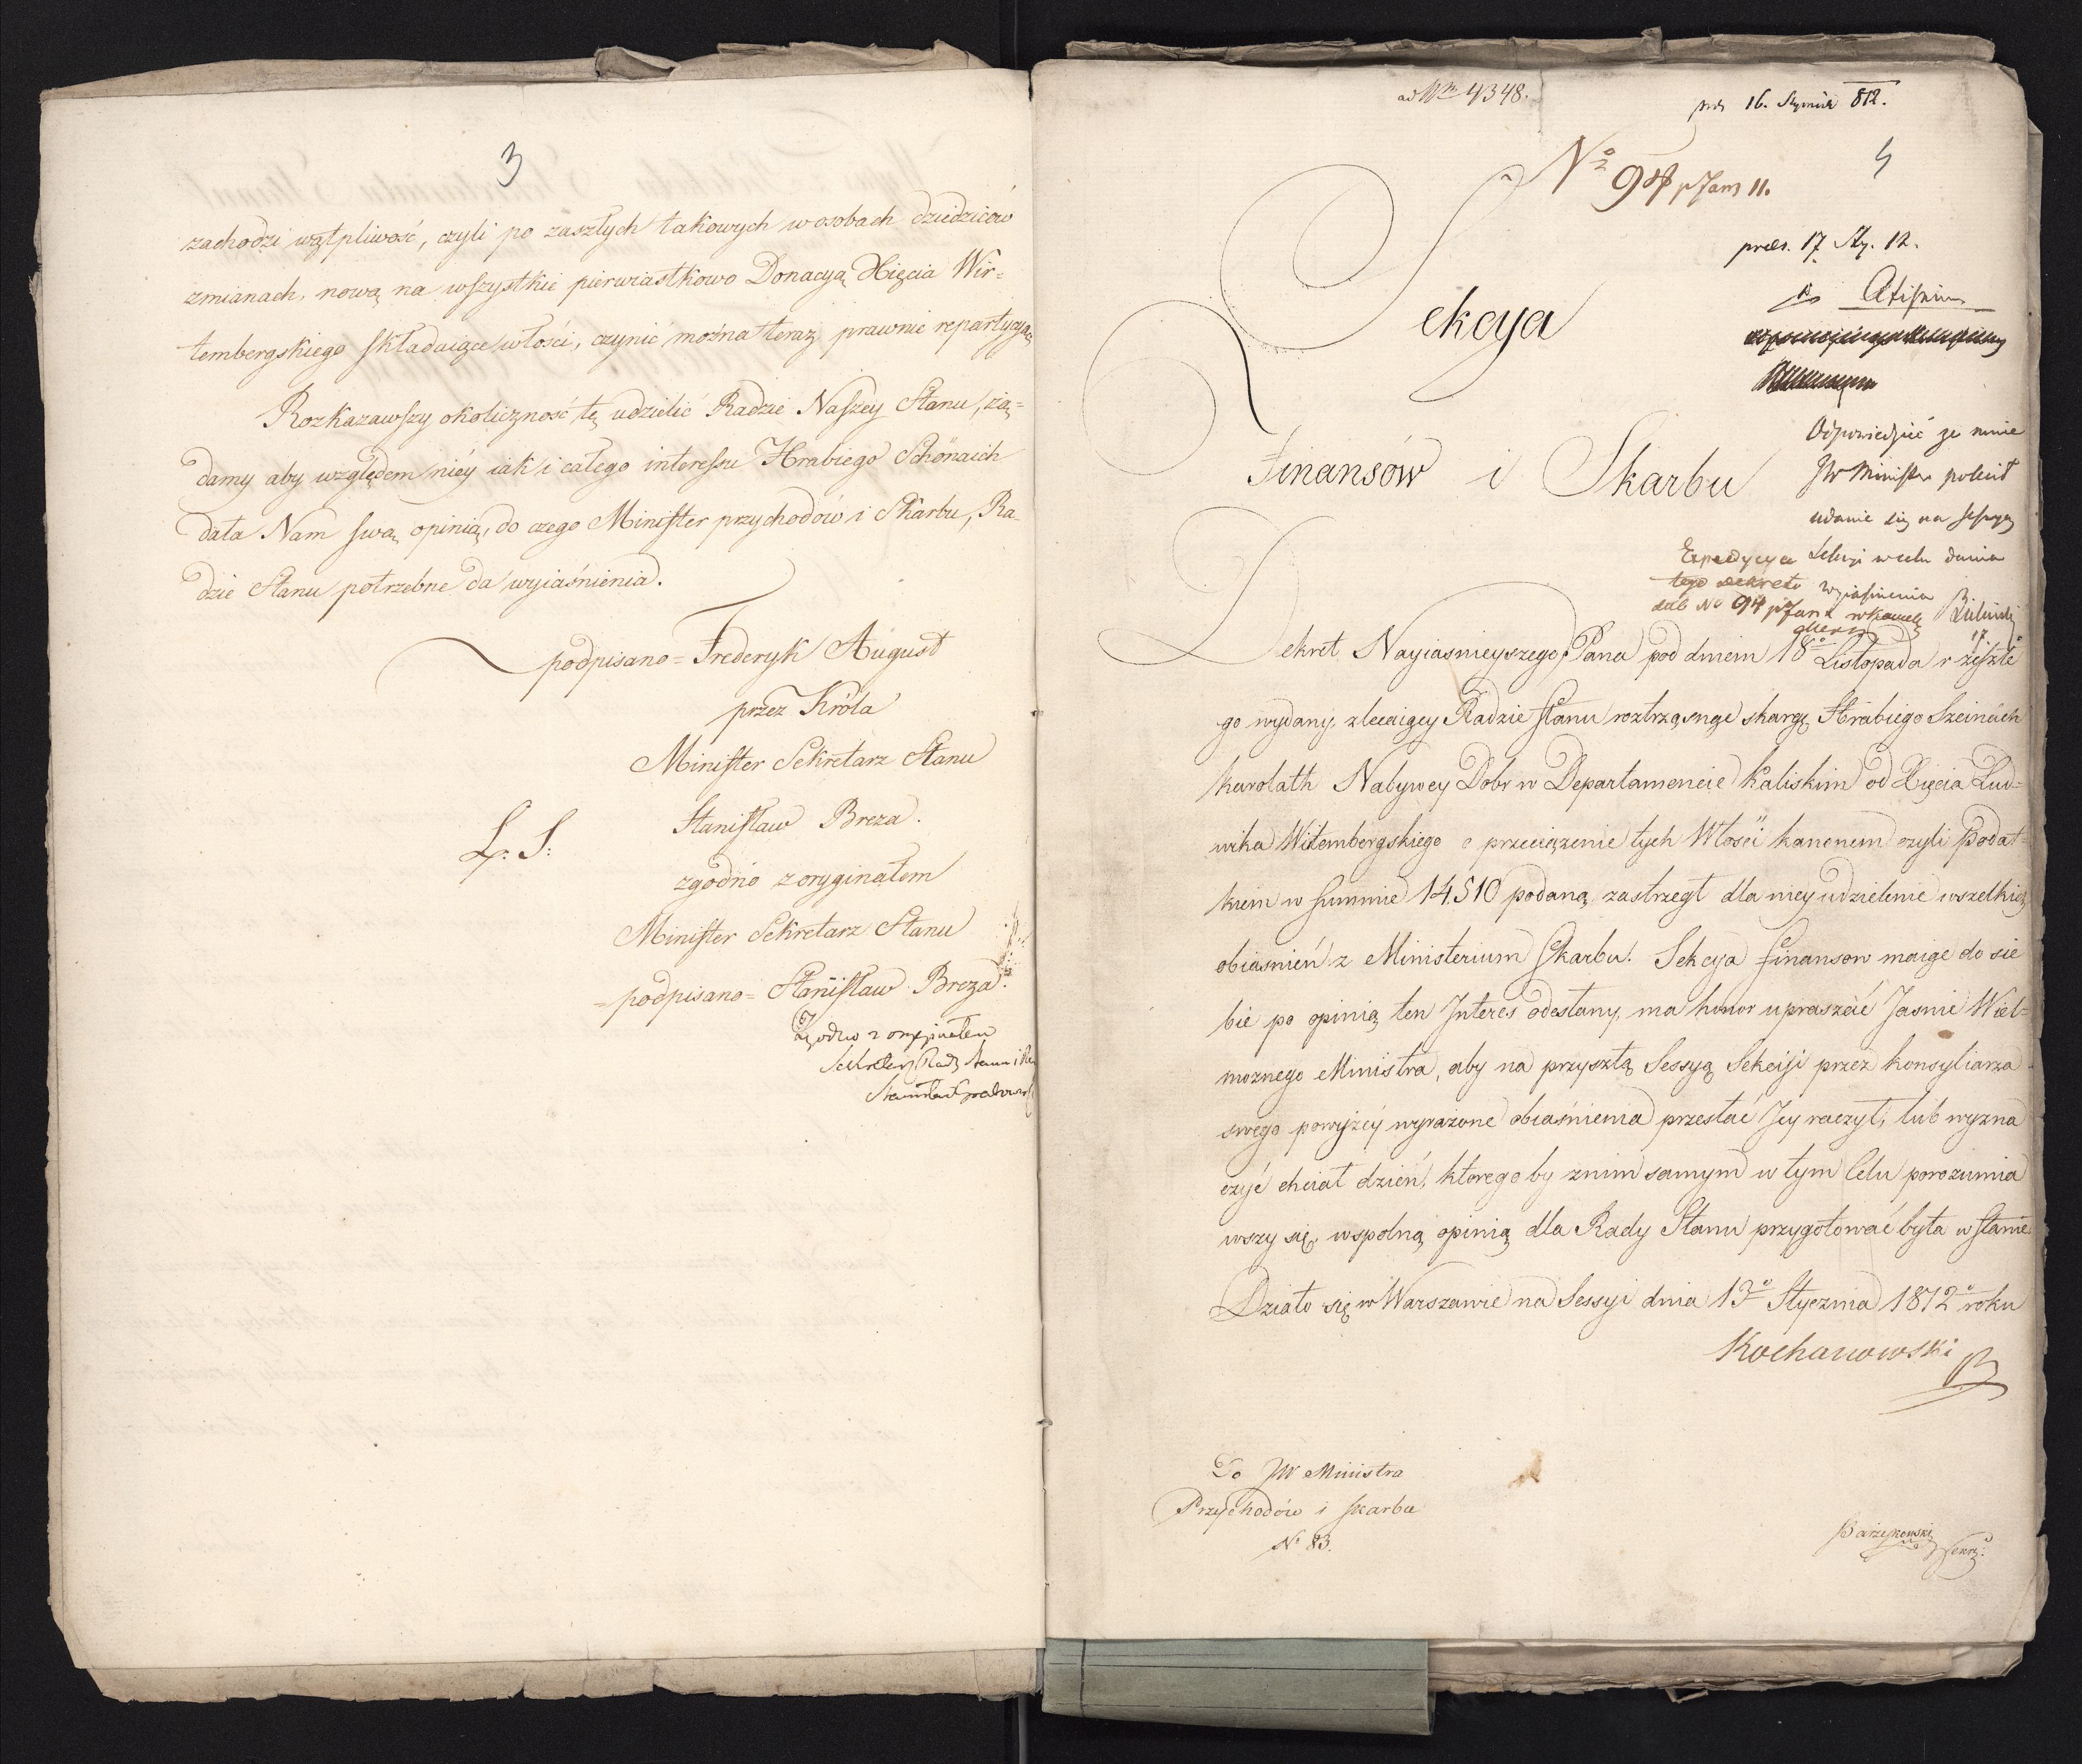 3
zachodzi wątpliwość, czyli po zaszłych takowych w osobach dziedziców
zmianach, nową na wszystkie pierwiastkowo Donacyą Xięcia Wir=
tembergskiego składaiące włości, czynić można teraz prawnie repartycyą,
Rozkazawszy okoliczność tę udzielić Radzie Naszey Stanu, żą=
damy aby względem niéy iak i całego interessu Hrabiego Schönaich
dała Nam swą opinią, do czego Minister przychodów i Skarbu, Ra=
dzie Stanu potrzebne da wyiaśnienia.
podpisano = Frederyk August
przez Króla
Minister Sekretarz Stanu
Stanisław Breza.
L. S.
zgodno z oryginałem
Minister Sekretarz Stanu
= podpisano = Stanisław Breza.
Zgodno z oryginałem
Sekretarz Rady Stanu i
Stanisław Grabowski
ad Nrm 4348.
16. Stycznia 812.
No 94 p Jans 11.
4
praes. 17. Sty. 12.
Sekcya
Finansów i Skarbu
Odpowiedzieć że mnie
JW Minister polecił
udanie się na sessyą
Sekcyi w celu dania
wyiaśnienia
Expedycya
tego dekretu
sub No 94 p Jans
17
Dekret Nayiasnieyszego Pana pod dniem 18o Listopada r zeszłe
go wydany, zlecaiący Radzie Stanu roztrząsnąć skargę Hrabiego Szeinäich
Karolath Nabywcy Dobr w Departamencie Kaliskim od Xięcia Lud=
wika Witembergskiego o przeciążenie tych Włości kanonem czyli Podat=
kiem w summie 14.510 podaną, zastrzegł dla niey udzielenie wszelkich
obiasnień z Ministerium Skarbu. Sekcya finansow maiąc do sie
bie po opinią ten Interes odesłany, ma honor upraszać Jasnie Wiel=
moznego Ministra, aby na przyszłą Sessyą Sekcyi przez konsyliarza
swego powyżey wyrazone obiaśnienia przesłać Jey raczył, lub wyzna
czyć chciał dzień, ktorego by z nim samym w tym Celu porozumia
wszy się, wspolną opinią dla Rady Stanu przygotować była w stanie
Działo się w Warszawie na Sessyi dnia 13o Stycznia 1812o roku
Kochanowski
Do JW Ministra
Przychodów i Skarbu
No 83.
Barzykowski Sekrz.